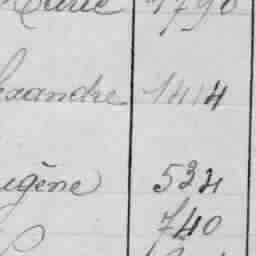 Marie 1790
exandre 1414
ugène 534
740